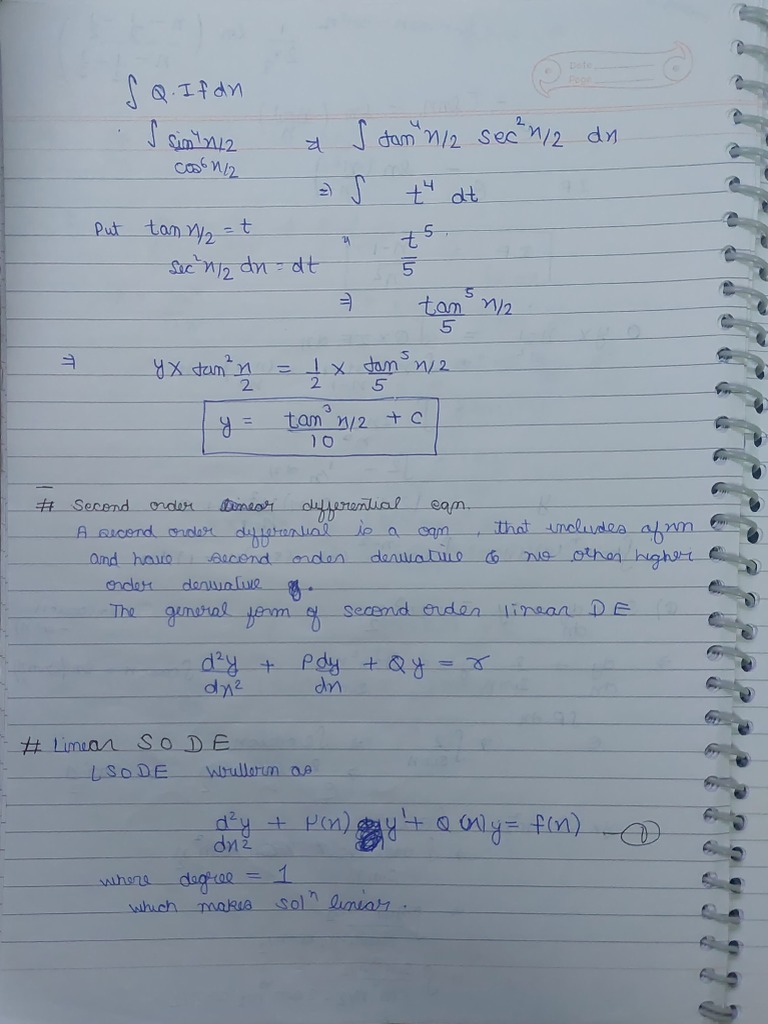 Date
Page
∫ Q.If dn
∫ sin⁴n/2 / cos⁶n/2 ⇒ ∫ tan⁴n/2 sec²n/2 dn
⇒ ∫ t⁴ dt
Put tan n/2 = t
sec²n/2 dn = dt " t⁵/5
⇒ tan⁵n/2 / 5
⇒ y x tan² n/2 = 1/2 x tan⁵n/2 / 5
y = tan³n/2 / 10 + c
# Second order linear differential eqn.
A second order differential is a eqn, that includes a fnn
and have second order derivative & no other higher
order derivative
The general form of second order linear DE
d²y/dn² + Pdy/dn + Qy = r
# Linear SODE
LSODE as
d²y/dn² + P(n) y' + Q(n)y = f(n) — ①
where degree = 1
which makes solⁿ linear.